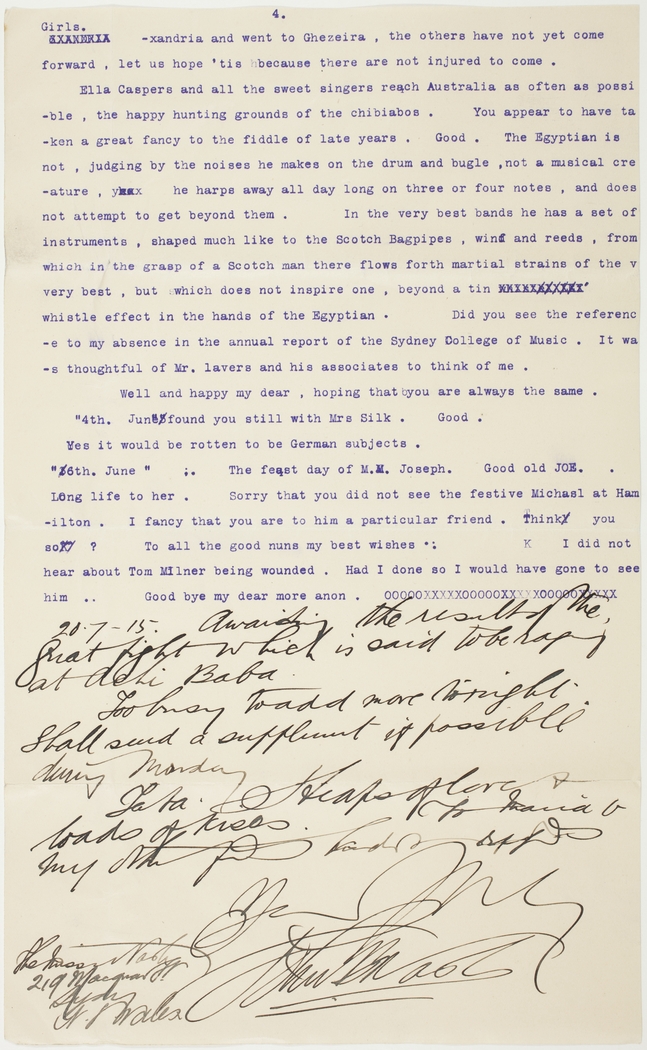 4.
Girls.
XXANDRIA -xandria and went to Ghezeira , the others have not yet come
forward , let us hope 'tis because there are not injured to come .
Ella Caspers and all the sweet singers reach Australia as often as possi
-ble , the happy hunting grounds of the chibiabos . You appear to have ta
-ken a great fancy to the fiddle of late years . Good . The Egyptian is
not , judging by the noises he makes on the drum and bugle ,not a musical cre
-ature , he harps away all day long on three or four notes , and does
not attempt to get beyond them . In the very best bands he has a set of
instruments , shaped much like to the Scotch Bagpipes , wind and reeds , from
which in the grasp of a Scotch man there flows forth martial strains of the v
very best , but which does not inspire one , beyond a tin XXXXXXXXXXX
whistle effect in the hands of the Egyptian . Did you see the referenc
-e to my absence in the annual report of the Sydney College of Music . It wa
-s thoughtful of Mr. lavers and his associates to think of me .
Well and happy my dear , hoping that you are always the same .
"4th. June" found you still with Mrs Silk . Good .
Yes it would be rotten to be German subjects .
"16th. June " ;. The feast day of M.M. Joseph. Good old JOE. .
Long life to her . Sorry that you did not see the festive Michasl at Ham
-ilton . I fancy that you are to him a particular friend . Think you
so ? To all the good nuns my best wishes . K I did not
hear about Tom Milner being wounded . Had I done so I would have gone to see
him .. Good bye my dear more anon . OOOOOXXXXXOOOOOXXXXXOOOOOXXXXX
20-7-15. Awaiting the result of the
great fight which is said to be raging
at Achi Baba
Too busy to add more tonight.
Shall send a supplement if possible
during Monday
Tata. Heaps of love &
loads of kisses. To Mania &
my
Your
John B Nash
The Misses Nash
219 Macquarie St.
Sydney
N. S Wales